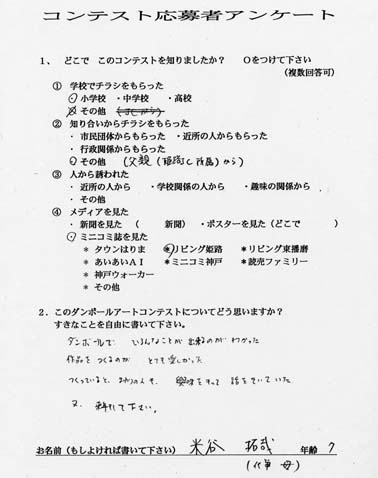 コンテスト応募者アンケート
1、 どこで このコンテストを知りましたか？ ○をつけて下さい
（複数回答可）
① 学校でチラシをもらった
・小学校 ・中学校 ・高校
その他
② 知り合いからチラシをもらった
・ 市民団体からもらった ・近所の人からもらった
・ 行政関係からもらった
その他 （父親（ から）
③ 人から誘われた
・ 近所の人から ・学校関係の人から ・趣味の関係から
・ その他
④ メディアを見た
・ 新聞を見た （ 新聞） ・ポスターを見た（どこで ）
・ ミニコミ誌を見た
＊ タウンはりま ＊リビング姫路 ＊リビング東播磨
＊ あいあいＡＩ ＊ミニコミ神戸 ＊読売ファミリー
＊ 神戸ウォーカー
＊ その他
2．このダンボールアートコンテストについてどう思いますか？
すきなことを自由に書いて下さい。
ダンボールで いろんなことが 出来るのが わかった
作品を つくるのが とても楽しかった
つくっていると、まわりの人も、興味をもって 話をきいていた
又、 下さい。
お名前（もしよければ書いて下さい） 米谷 拓哉 年齢 7
（代筆 母）